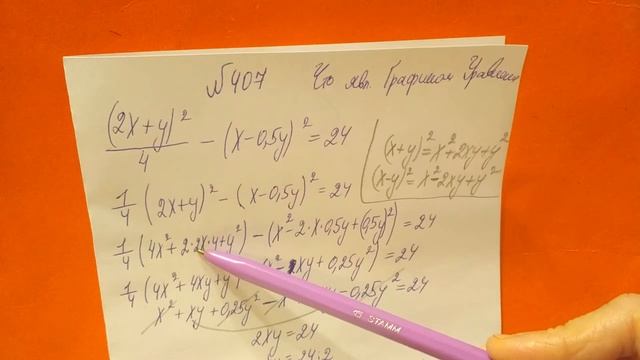 №407 Что явл. Графиком Уравнения
(2x+y)²/4 − (x−0,5y)² = 24
(x+y)²=x²+2xy+y²
(x−y)²=x²−2xy+y²
1/4 (2x+y)² − (x−0,5y)² = 24
1/4 (4x²+2·2x·y+y²) − (x²−2·x·0,5y+(0,5y)²) = 24
1/4 (4x²+4xy+y²) x²−xy+0,25y²) = 24
x²+xy+0,25y²−x² y−0,25y²=24
2xy=24
=24:2
STAMM